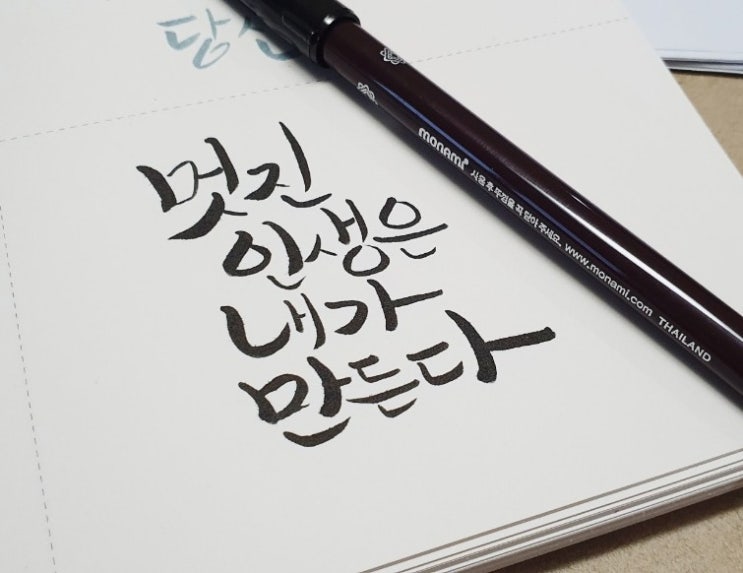 당신
멋진
인생은
내가
만든다
monami 사용 후 뚜껑을 꼭 닫아 주세요. www.monami.com THAILAND